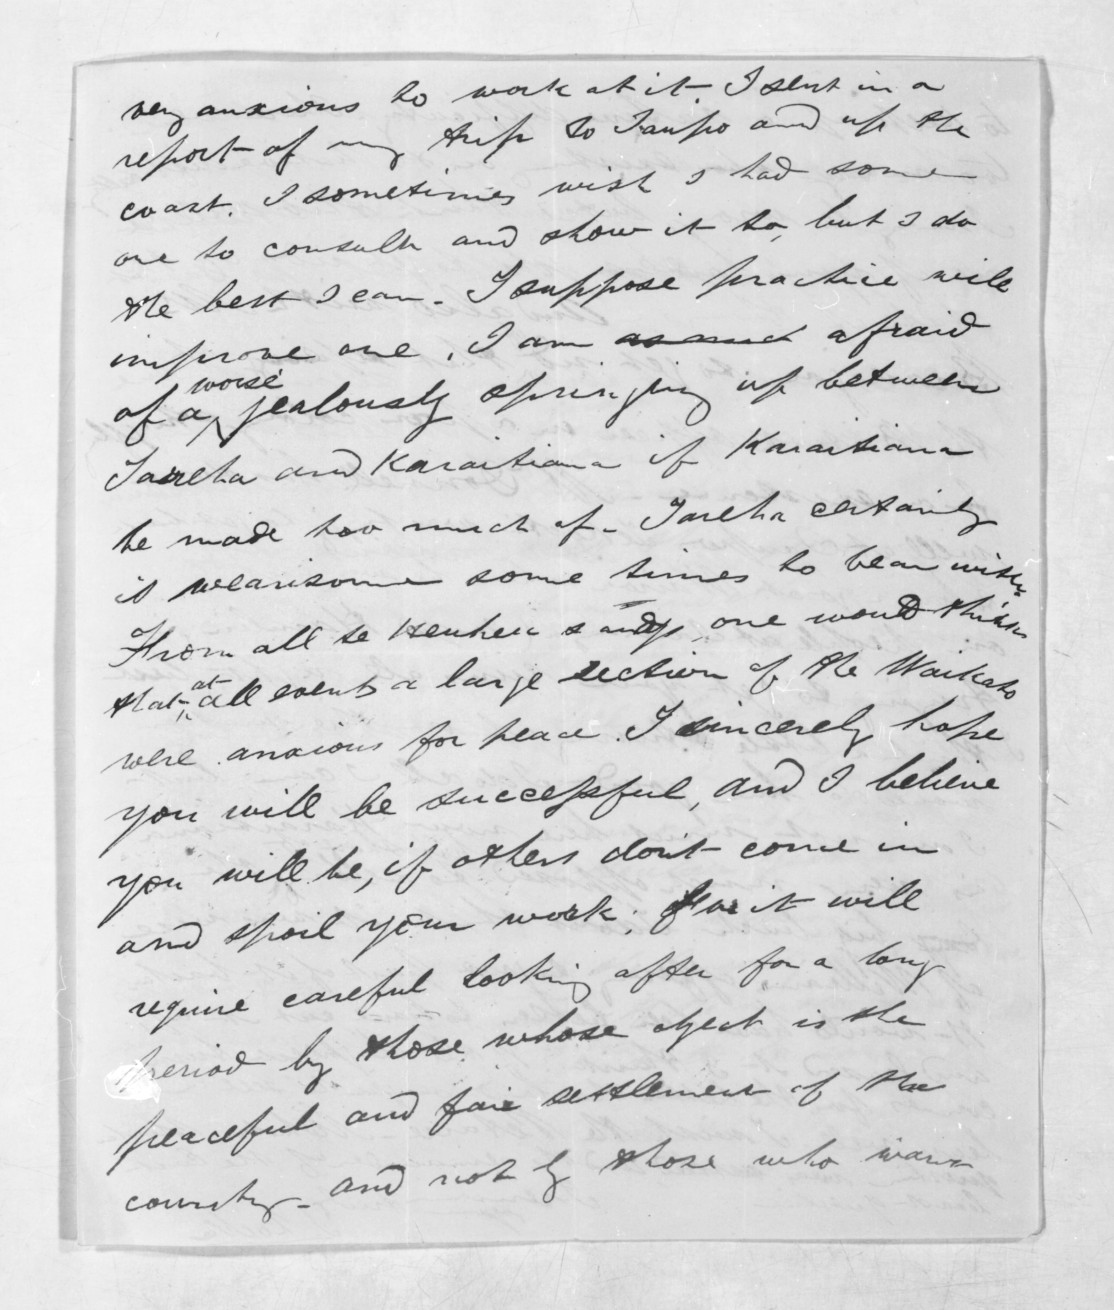 very anxious to work at it I sent in a
report of my trip to Taupo and up the
coast. I sometimes wish I had some
one to consult and show it to, but I do
the best I can. I suppose practice will
improve one. I am as much afraid
of a worse jealously springing up between
Tareha and Karaitiana if Karaitiana
be made too much of. Tareha certainly
is wearisome some times to bear with.
From all te Heuheu says, one would think
that at all events a large section of the Waikato
were anxious for peace. I sincerely hope
you will be successful, and I believe
you will be, if others dont come in
and spoil your work. For it will
require careful looking after for a long
period by those whose object is the
peaceful and fair settlement of the
country - and not by those who want